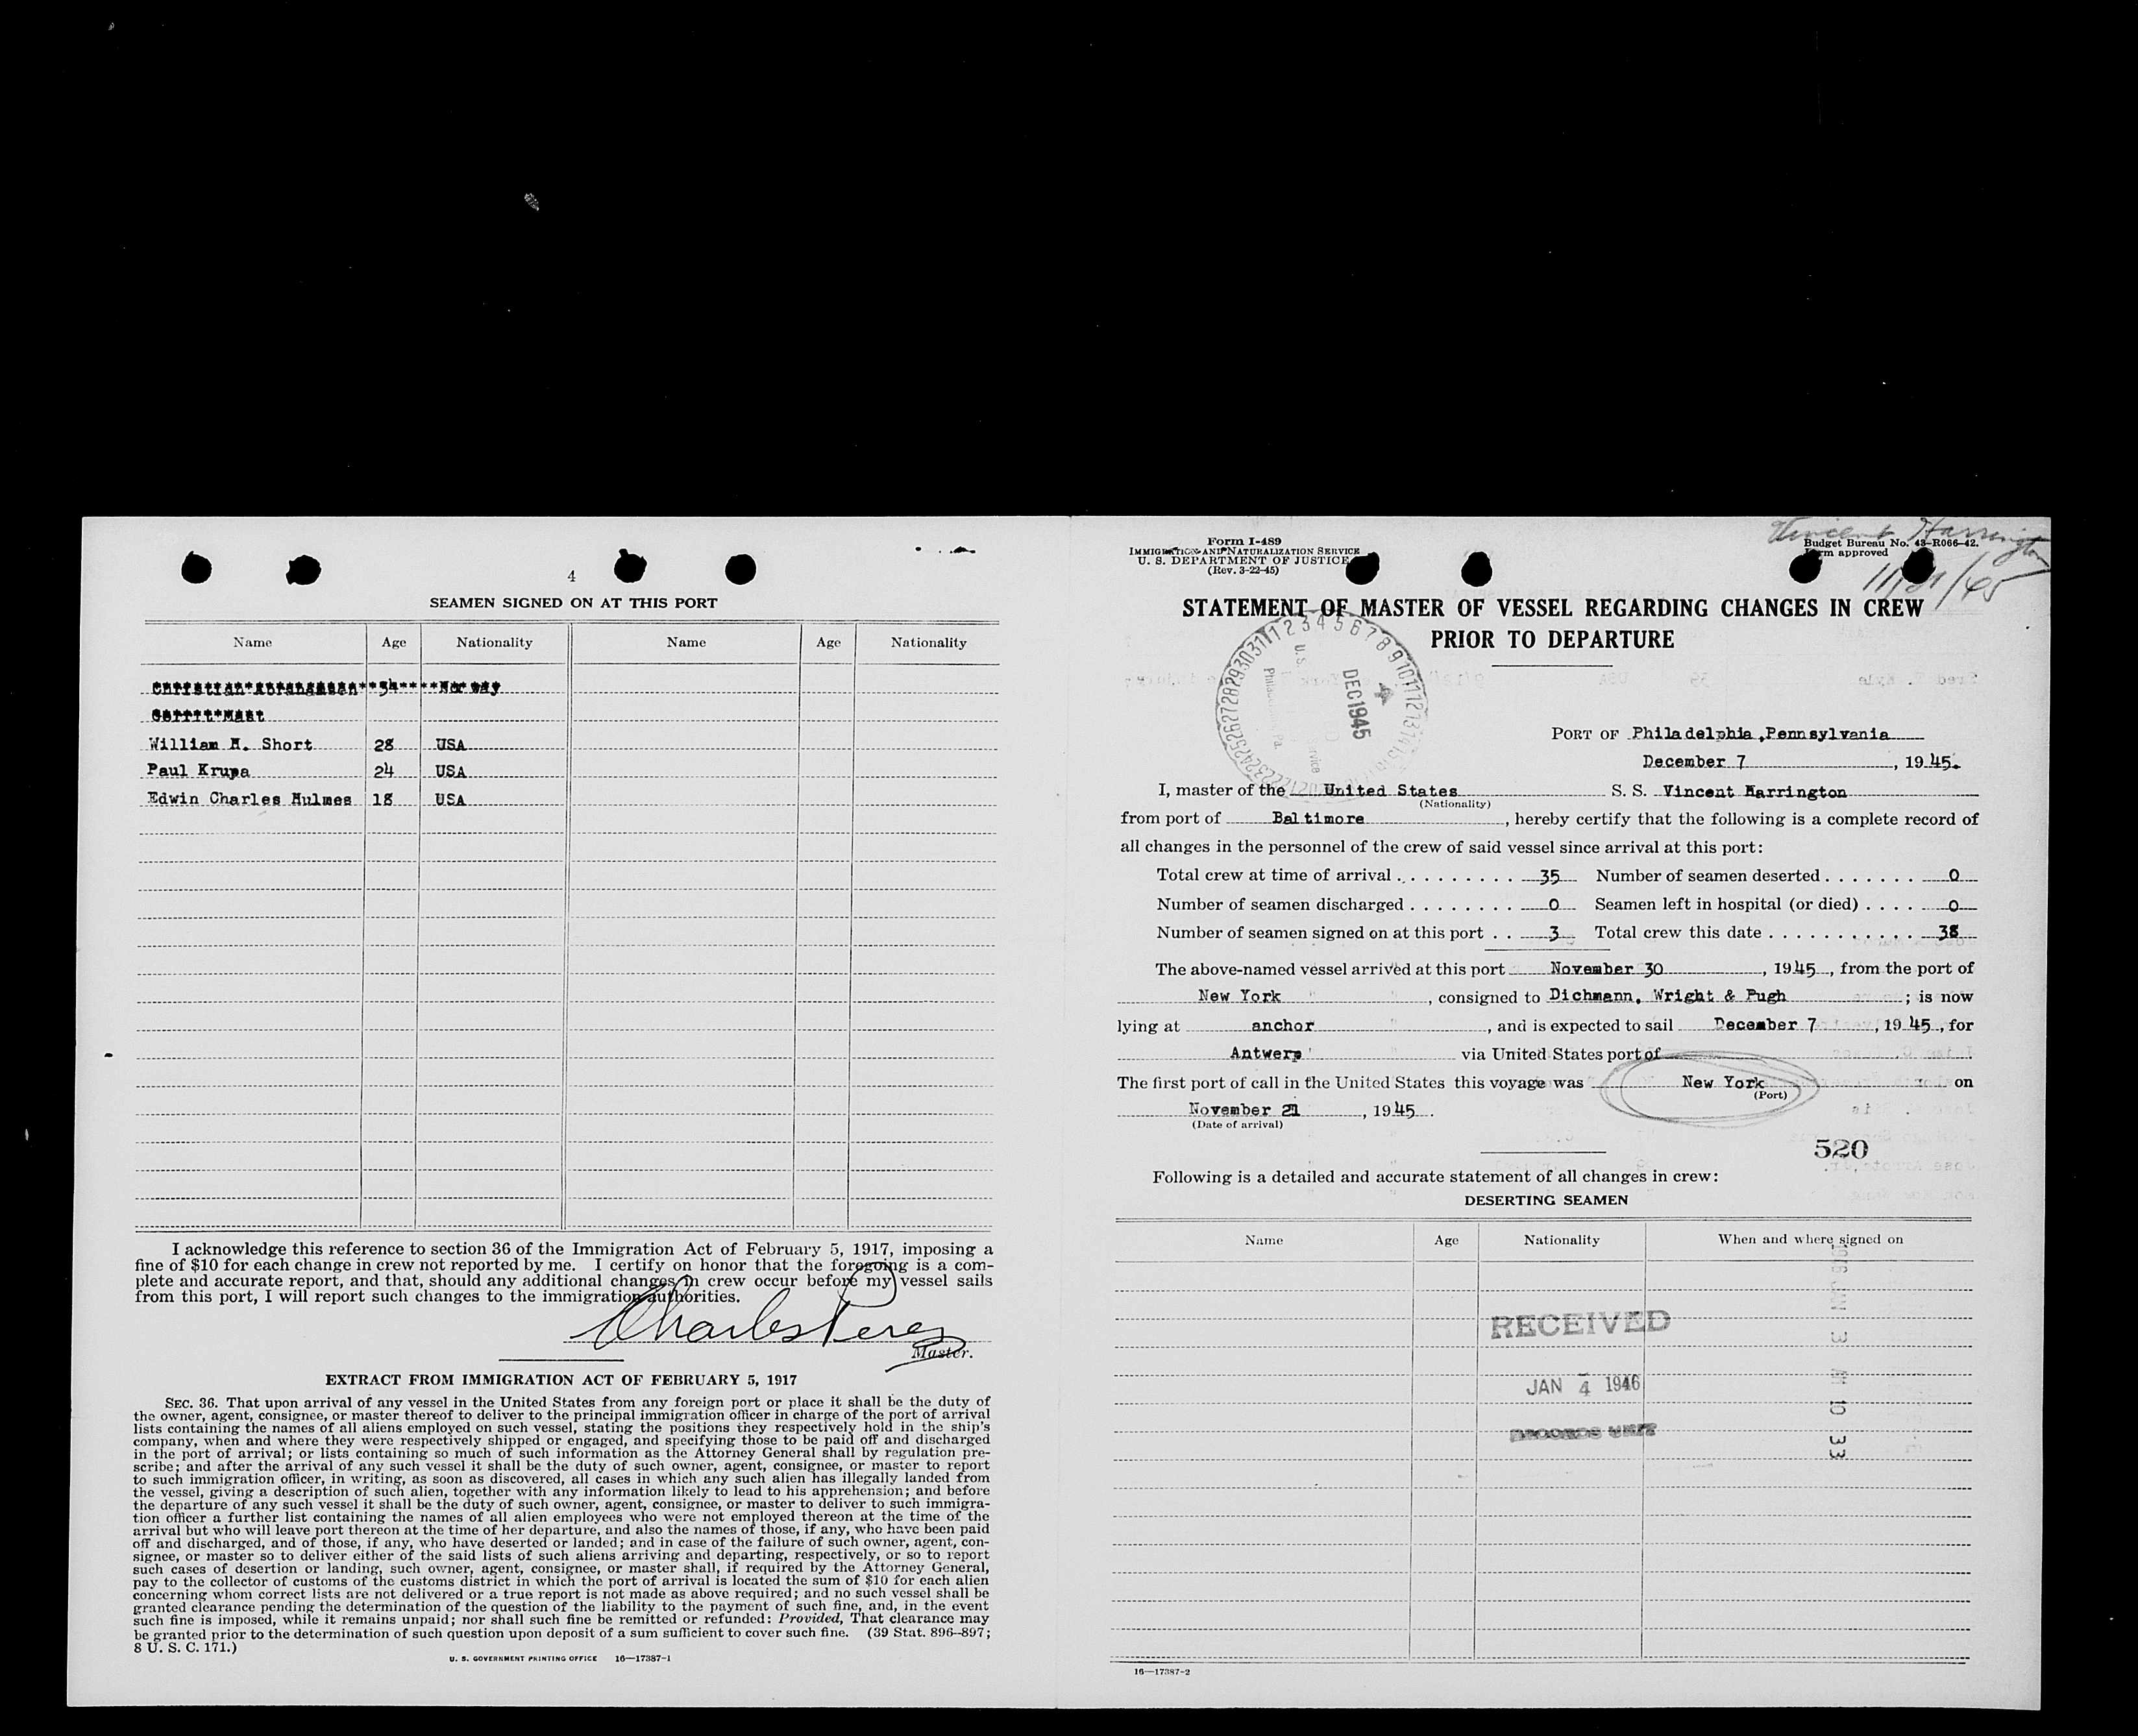 4
SEAMEN SIGNED ON AT THIS PORT
Name Age Nationality Name Age Nationality
34 Norway
William H. Short 28 USA
Paul Krupa 24 USA
Edwin Charles Hulmes 18 USA
I acknowledge this reference to section 36 of the Immigration Act of February 5, 1917, imposing a
fine of $10 for each change in crew not reported by me. I certify on honor that the foregoing is a com-
plete and accurate report, and that, should any additional changes in crew occur before my vessel sails
from this port, I will report such changes to the immigration authorities.
Charles Peres
Master.
EXTRACT FROM IMMIGRATION ACT OF FEBRUARY 5, 1917
SEC. 36. That upon arrival of any vessel in the United States from any foreign port or place it shall be the duty of
the owner, agent, consignee, or master thereof to deliver to the principal immigration officer in charge of the port of arrival
lists containing the names of all aliens employed on such vessel, stating the positions they respectively hold in the ship's
company, when and where they were respectively shipped or engaged, and specifying those to be paid off and discharged
in the port of arrival; or lists containing so much of such information as the Attorney General shall by regulation pre-
scribe; and after the arrival of any such vessel it shall be the duty of such owner, agent, consignee, or master to report
to such immigration officer, in writing, as soon as discovered, all cases in which any such alien has illegally landed from
the vessel, giving a description of such alien, together with any information likely to lead to his apprehension; and before
the departure of any such vessel it shall be the duty of such owner, agent, consignee, or master to deliver to such immigra-
tion officer a further list containing the names of all alien employees who were not employed thereon at the time of the
arrival but who will leave port thereon at the time of her departure, and also the names of those, if any, who have been paid
off and discharged, and of those, if any, who have deserted or landed; and in case of the failure of such owner, agent, con-
signee, or master so to deliver either of the said lists of such aliens arriving and departing, respectively, or so to report
such cases of desertion or landing, such owner, agent, consignee, or master shall, if required by the Attorney General,
pay to the collector of customs of the customs district in which the port of arrival is located the sum of $10 for each alien
concerning whom correct lists are not delivered or a true report is not made as above required; and no such vessel shall be
granted clearance pending the determination of the question of the liability to the payment of such fine, and, in the event
such fine is imposed, while it remains unpaid; nor shall such fine be remitted or refunded: Provided, That clearance may
be granted prior to the determination of such question upon deposit of a sum sufficient to cover such fine. (39 Stat. 896–897;
8 U. S. C. 171.)
U. S. GOVERNMENT PRINTING OFFICE 16—17387-1
Vincent Harrington
11/21/45
Form I-489
IMMIGRATION AND NATURALIZATION SERVICE
U. S. DEPARTMENT OF JUSTICE
(Rev. 3-22-45)
Budget Bureau No. 43-R066-42.
Form approved
STATEMENT OF MASTER OF VESSEL REGARDING CHANGES IN CREW
PRIOR TO DEPARTURE
DEC 1945
PORT OF Philadelphia, Pennsylvania
December 7, 1945.
I, master of the United States S. S. Vincent Harrington
(Nationality)
from port of Baltimore, hereby certify that the following is a complete record of
all changes in the personnel of the crew of said vessel since arrival at this port:
Total crew at time of arrival . . . . . . . . . . 35 Number of seamen deserted . . . . . . . 0
Number of seamen discharged . . . . . . . . 0 Seamen left in hospital (or died) . . . . 0
Number of seamen signed on at this port . . 3 Total crew this date . . . . . . . . . . . 38
The above-named vessel arrived at this port November 30, 1945, from the port of
New York, consigned to Dichmann, Wright & Pugh; is now
lying at anchor, and is expected to sail December 7, 1945, for
Antwerp via United States port of
The first port of call in the United States this voyage was New York on
(Port)
November 21, 1945.
(Date of arrival)
520
Following is a detailed and accurate statement of all changes in crew:
DESERTING SEAMEN
Name Age Nationality When and where signed on
RECEIVED
JAN 4 1946
RECORDS UNIT
1946 JAN 3 AM 10 33
16—17387-2